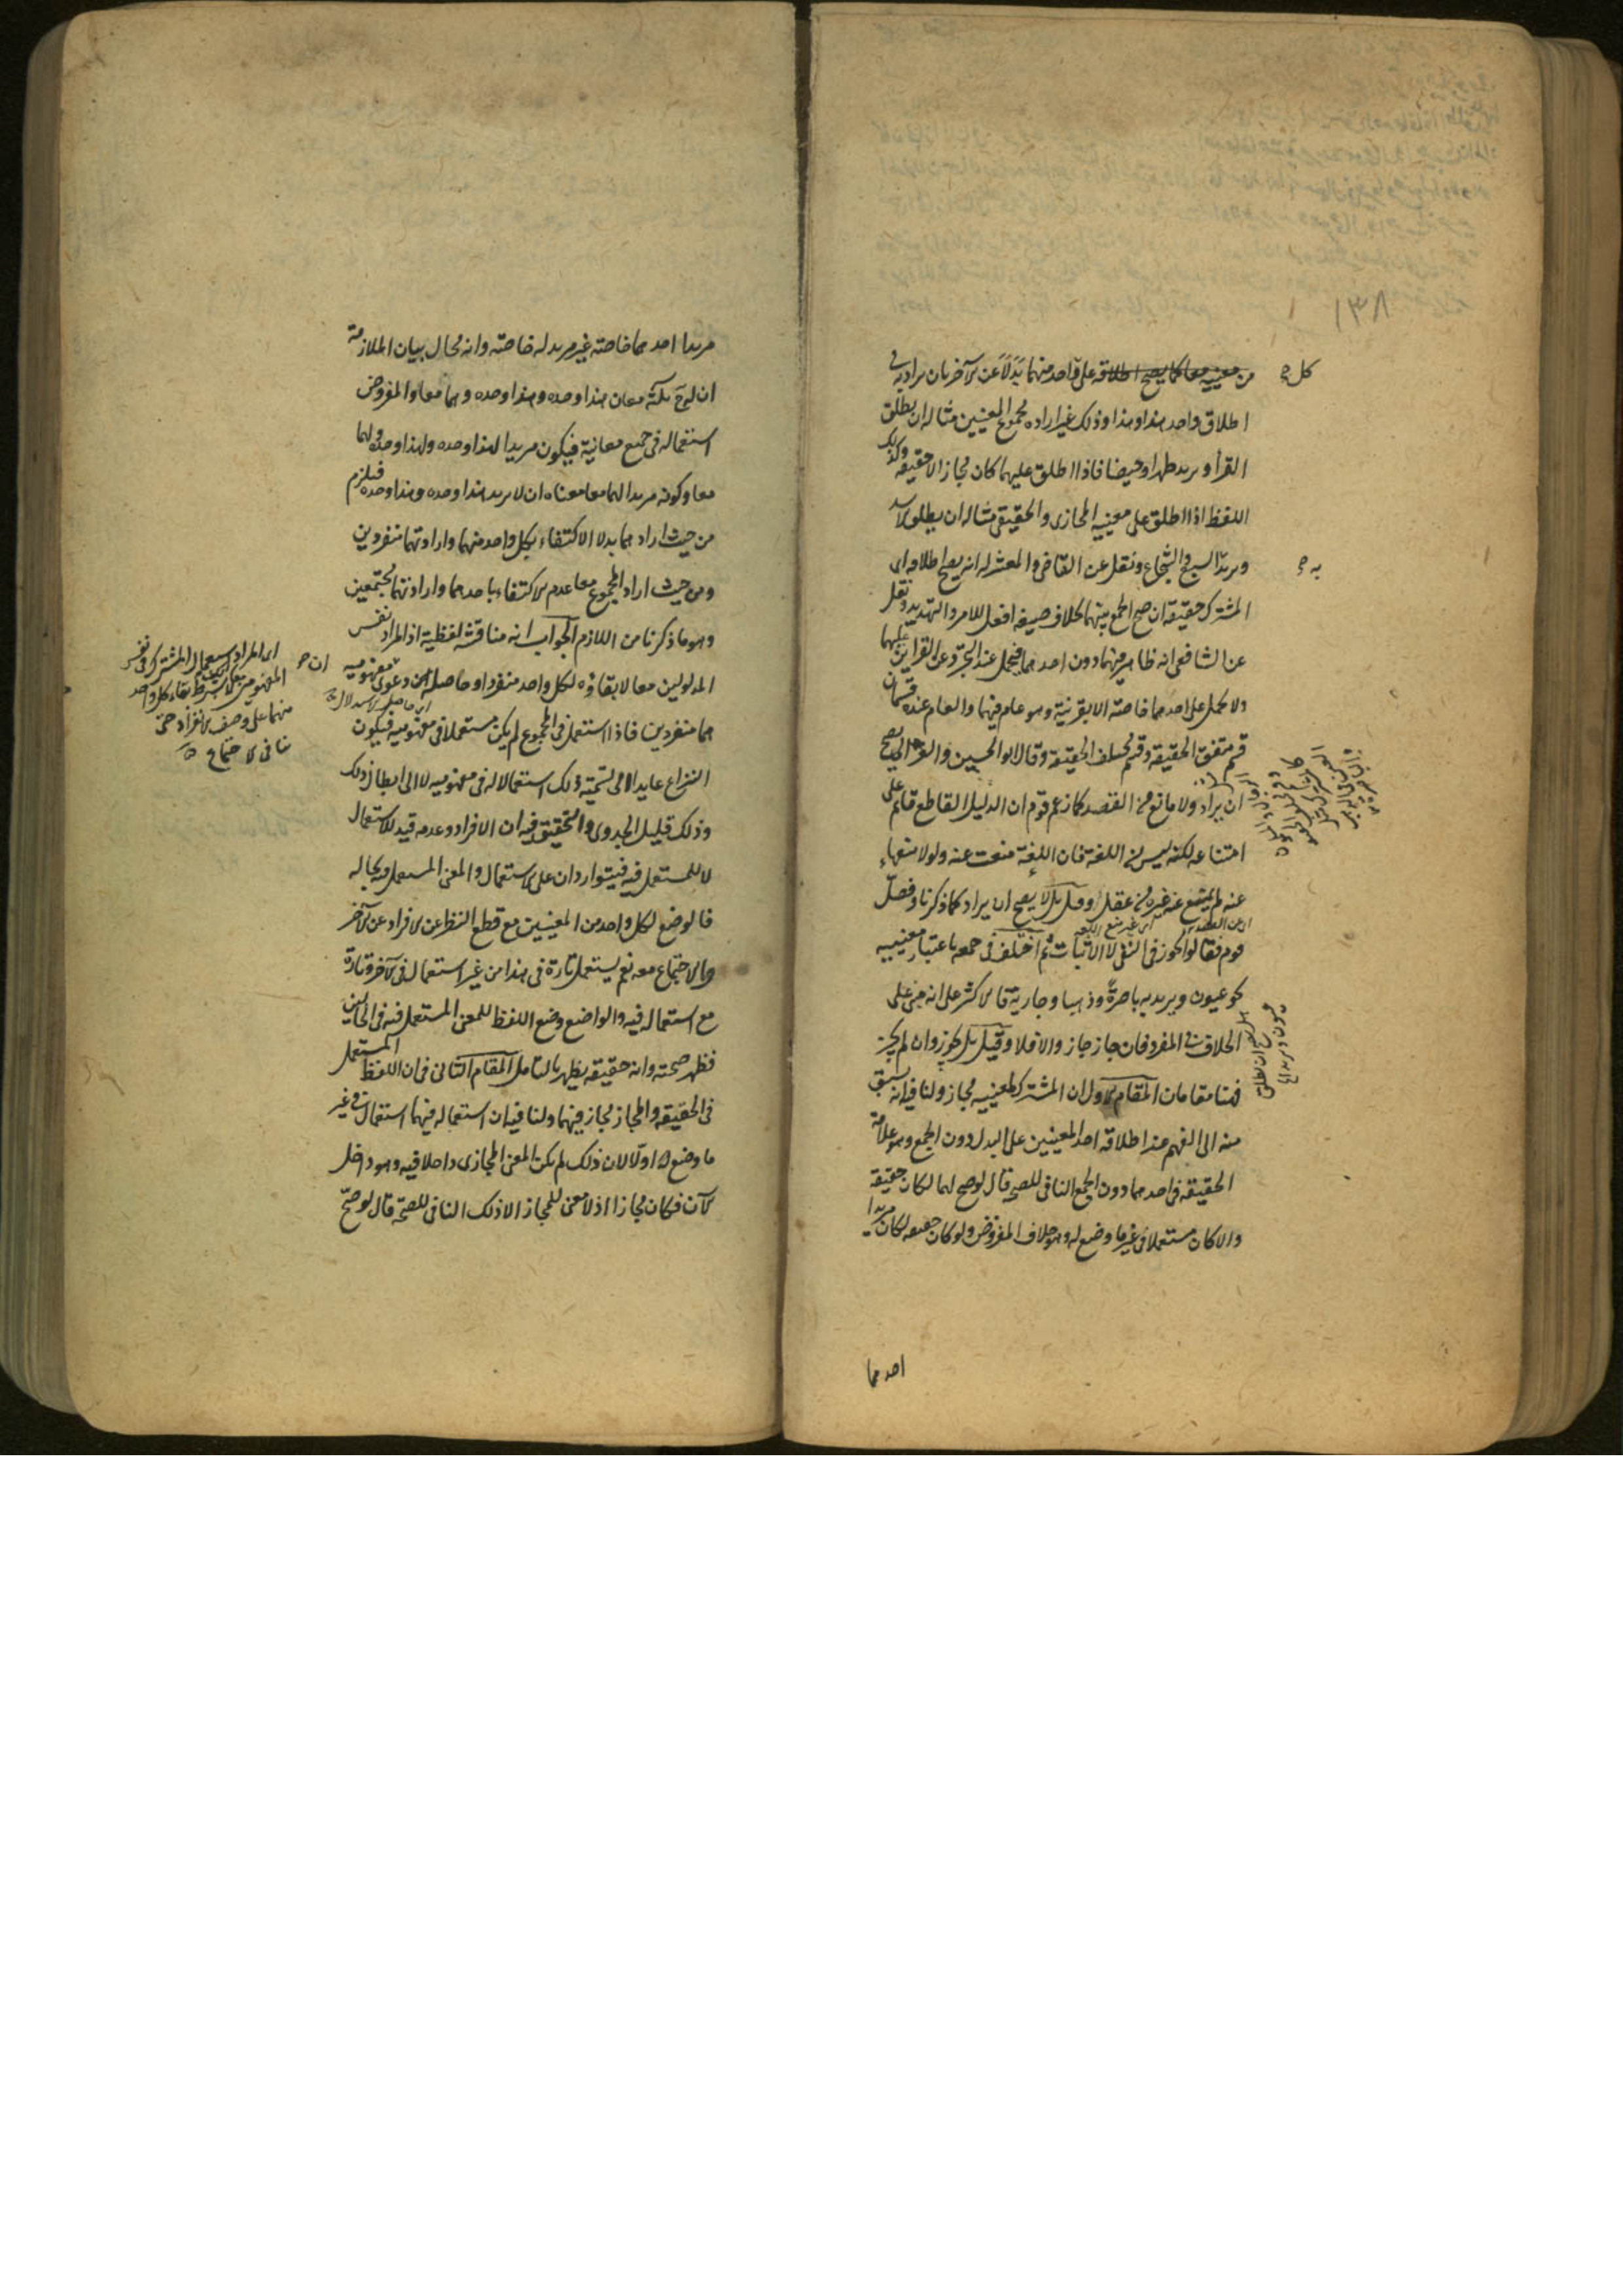 ١٣٨
من معنييه معا كما يصح اطلاقه على واحد منهما بَدَلاً عن الآخر بان يراد به في
كل
اطلاق واحد هذا وهذا وذلك غير ارادة مجموع المعنيين مثاله ان يطلق
القرأ ويريد طهرا وحيضا فاذا اطلق عليهما كان مجازا لا حقيقة وكذلك
اللفظ اذا اطلق على معنييه المجازى والحقيقى مثاله ان يطلق الاسد
ويريد السبع والشجاع ونقل عن القاضى والمعتزلة انه يصح اطلاقه اى
به
المشترك حقيقة ان صح الجمع بينهما بخلاف صيغة افعل للامر والتهديد ونقل
عن الشافعى انه ظاهر فيهما دون احدهما فيحمل عند التجرد عن القرائن عليهما
ولا يحمل على احدهما خاصة الا بقرينة وهو عام فيهما والعام عنده قسمان
قسم متفق الحقيقة وقسم مختلف الحقيقة وقال ابو الحسين والغزالى يصح
ان يراد ولا مانع من القصد كما زعم قوم ان الدليل القاطع قائم على
امتناعه لكنه ليس من اللغة فان اللغة منعت عنه ولولا منعها
عنه لم يمتنع عنه غيره من عقل وقيل بل لا يصح ان يراد كما ذكرنا وفصل
قوم فقالوا يجوز فى النفى لا الاثبات ثم اختلف فى جمعه باعتبار معنييه
نحو عيون ويريد به باصرة وذهبا وجارية فالاكثر على انه مبنى على
الخلاف فى المفرد فان جاز جاز والا فلا وقيل بل يجوز وان لم يجز
فهنا مقامان المقام الاول ان المشترك لمعنييه مجاز ولنا فيه انه يسبق
منه الى الفهم عند اطلاقه احد المعنيين على البدل دون الجمع وهو علامة
الحقيقة فى احدهما دون الجمع النافى للصحة قال لو صح لهما لكان حقيقة
والا كان مستعملا فى غير ما وضع له وهو خلاف المفروض ولو كان حقيقة لكان مريدا
احدهما
مريدا احدهما خاصة غير مريد له خاصة وانه محال بيان الملازمة
ان له ح ثلثة معان هذا وحده وهذا وحده وهما معا والمفروض
استعماله فى جميع معانيه فيكون مريدا لهذا وحده ولهذا وحده ولهما
معا وكونه مريدا لهما معا معناه ان لا يريد هذا وحده وهذا وحده فيلزم
من حيث اراد هما بدلا الاكتفاء بكل واحد منهما وارادتهما منفردين
ومن حيث اراد المجموع معا عدم الاكتفاء باحدهما وارادتهما مجتمعين
وهو ما ذكرنا من اللازم الجواب انه مناقشة لفظية اذ المراد نفس
المدلولين معا لا بقاؤه لكل واحد منفردا وحاصله من دعوى مفهوميه
اى حاصل الاستدلال
هما منفردين فاذا استعمل فى المجموع لم يكن مستعملا فى مفهوميه فيكون
النزاع عايدا الى تسمية ذلك استعمالا له فى مفهوميه لا الى ابطال ذلك
وذلك قليل الجدوى والتحقيق فيه ان الافراد وعدمه قيد للاستعمال
لا للمستعمل فيه فيتواردان على الاستعمال والمعنى المستعمل فيه بحاله
فالوضع لكل واحد من المعنيين مع قطع النظر عن الافراد عن الآخر
والاجتماع معه نعم يستعمل تارة فى هذا من غير استعمال فى الآخر وتارة
مع استعماله فيه والواضع وضع اللفظ للمعنى المستعمل فيه فى الحالين
فظهر صحته وانه حقيقة يظهر بالتامل المقام الثانى فى ان اللفظ المستعمل
فى الحقيقة والمجاز مجاز فيهما ولنا فيه ان استعماله فيهما استعمال فى غير
ما وضع له اولا لان ذلك لم يكن المعنى المجازى داخلا فيه وهو داخل
الآن فكان مجازا اذ لا معنى للمجاز الا ذلك النافى للصحة قال لو صح
ان
منهما على وصف الانفراد حتى
ينافى الاجتماع